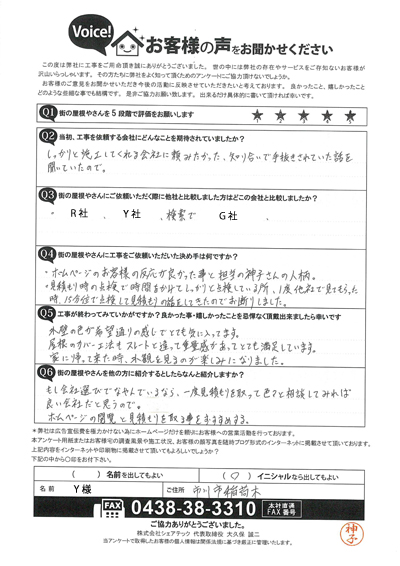 Voice!
お客様の声をお聞かせください
この度は弊社に工事をご用命頂き誠にありがとうございました。世の中には弊社の存在やサービスをご存知ないお客様が
沢山いらっしゃいます。その方たちに弊社をよく知って頂くためのアンケートにご協力頂けないでしょうか。
お客様のご意見をお聞かせいただき今後の活動に反映させていただきたいと考えております。良かったこと、嬉しかったこと
どのような些細な事でも結構です。是非ご協力お願い致します。出来るだけ具体的に書いて頂ければ幸いです。
Q1 街の屋根やさんを5段階で評価をお願いします ★ ★ ★ ★ ★
Q2 当初、工事を依頼する会社にどんなことを期待されていましたか?
しっかりと施工してくれる会社に頼みたかった、知り合いで手抜きされていた話を
聞いていたので。
Q3 街の屋根やさんにご依頼いただく際に他社と比較しました方はどこの会社と比較しましたか?
・R社、Y社、検索でG社、
Q4 街の屋根やさんに工事をご依頼いただいた決め手は何ですか?
・ホームページのお客様の反応が良かった事と担当の神子さんの人柄。
・見積もり時の点検で時間をかけてしっかりと点検している所、1度他社で見てもらった
時、15分位で点検して見積もりの話をしてきたのでお断りしました。
Q5 工事が終わってみていかがですか?良かった事・嬉しかったことを忌憚なく頂戴出来ましたら幸いです
外壁の色が希望通りの感じでとても気に入ってます。
屋根のカバー工法もスレートと違って重量感があってとても満足しています。
家に帰って来た時、外観を見るのが楽しみになりました。
Q6 街の屋根やさんを他の方に紹介するとしたらなんと紹介しますか?
もし会社選びでなやんでいるなら、一度見積もりを取って色々と相談してみれば
良い会社だと思うので。
ホームページの閲覧と見積もりを取る事をおすすめする。
*弊社は広告宣伝費を極力かけない為にホームページだけを頼りにお客様への営業活動を行っております。
本アンケート用紙またはお客様宅の調査風景や施工状況、お客様の顔写真を随時ブログ形式のインターネットに掲載させて頂いております。
上記内容をインターネットや印刷物に掲載させて頂いてもよろしいでしょうか?
下記の中から〇印をお付下さい。
( )名前を出してもよい (〇)イニシャルなら出してもよい
名前 Y様 ご住所 市川市稲荷木
FAX 0438-38-3310 本社直通FAX番号
ご協力ありがとうございました。
株式会社シェアテック 代表取締役 大久保 誠二
当アンケートで取得したお客様の個人情報は関係法規に基づき厳正に管理いたします。
神子